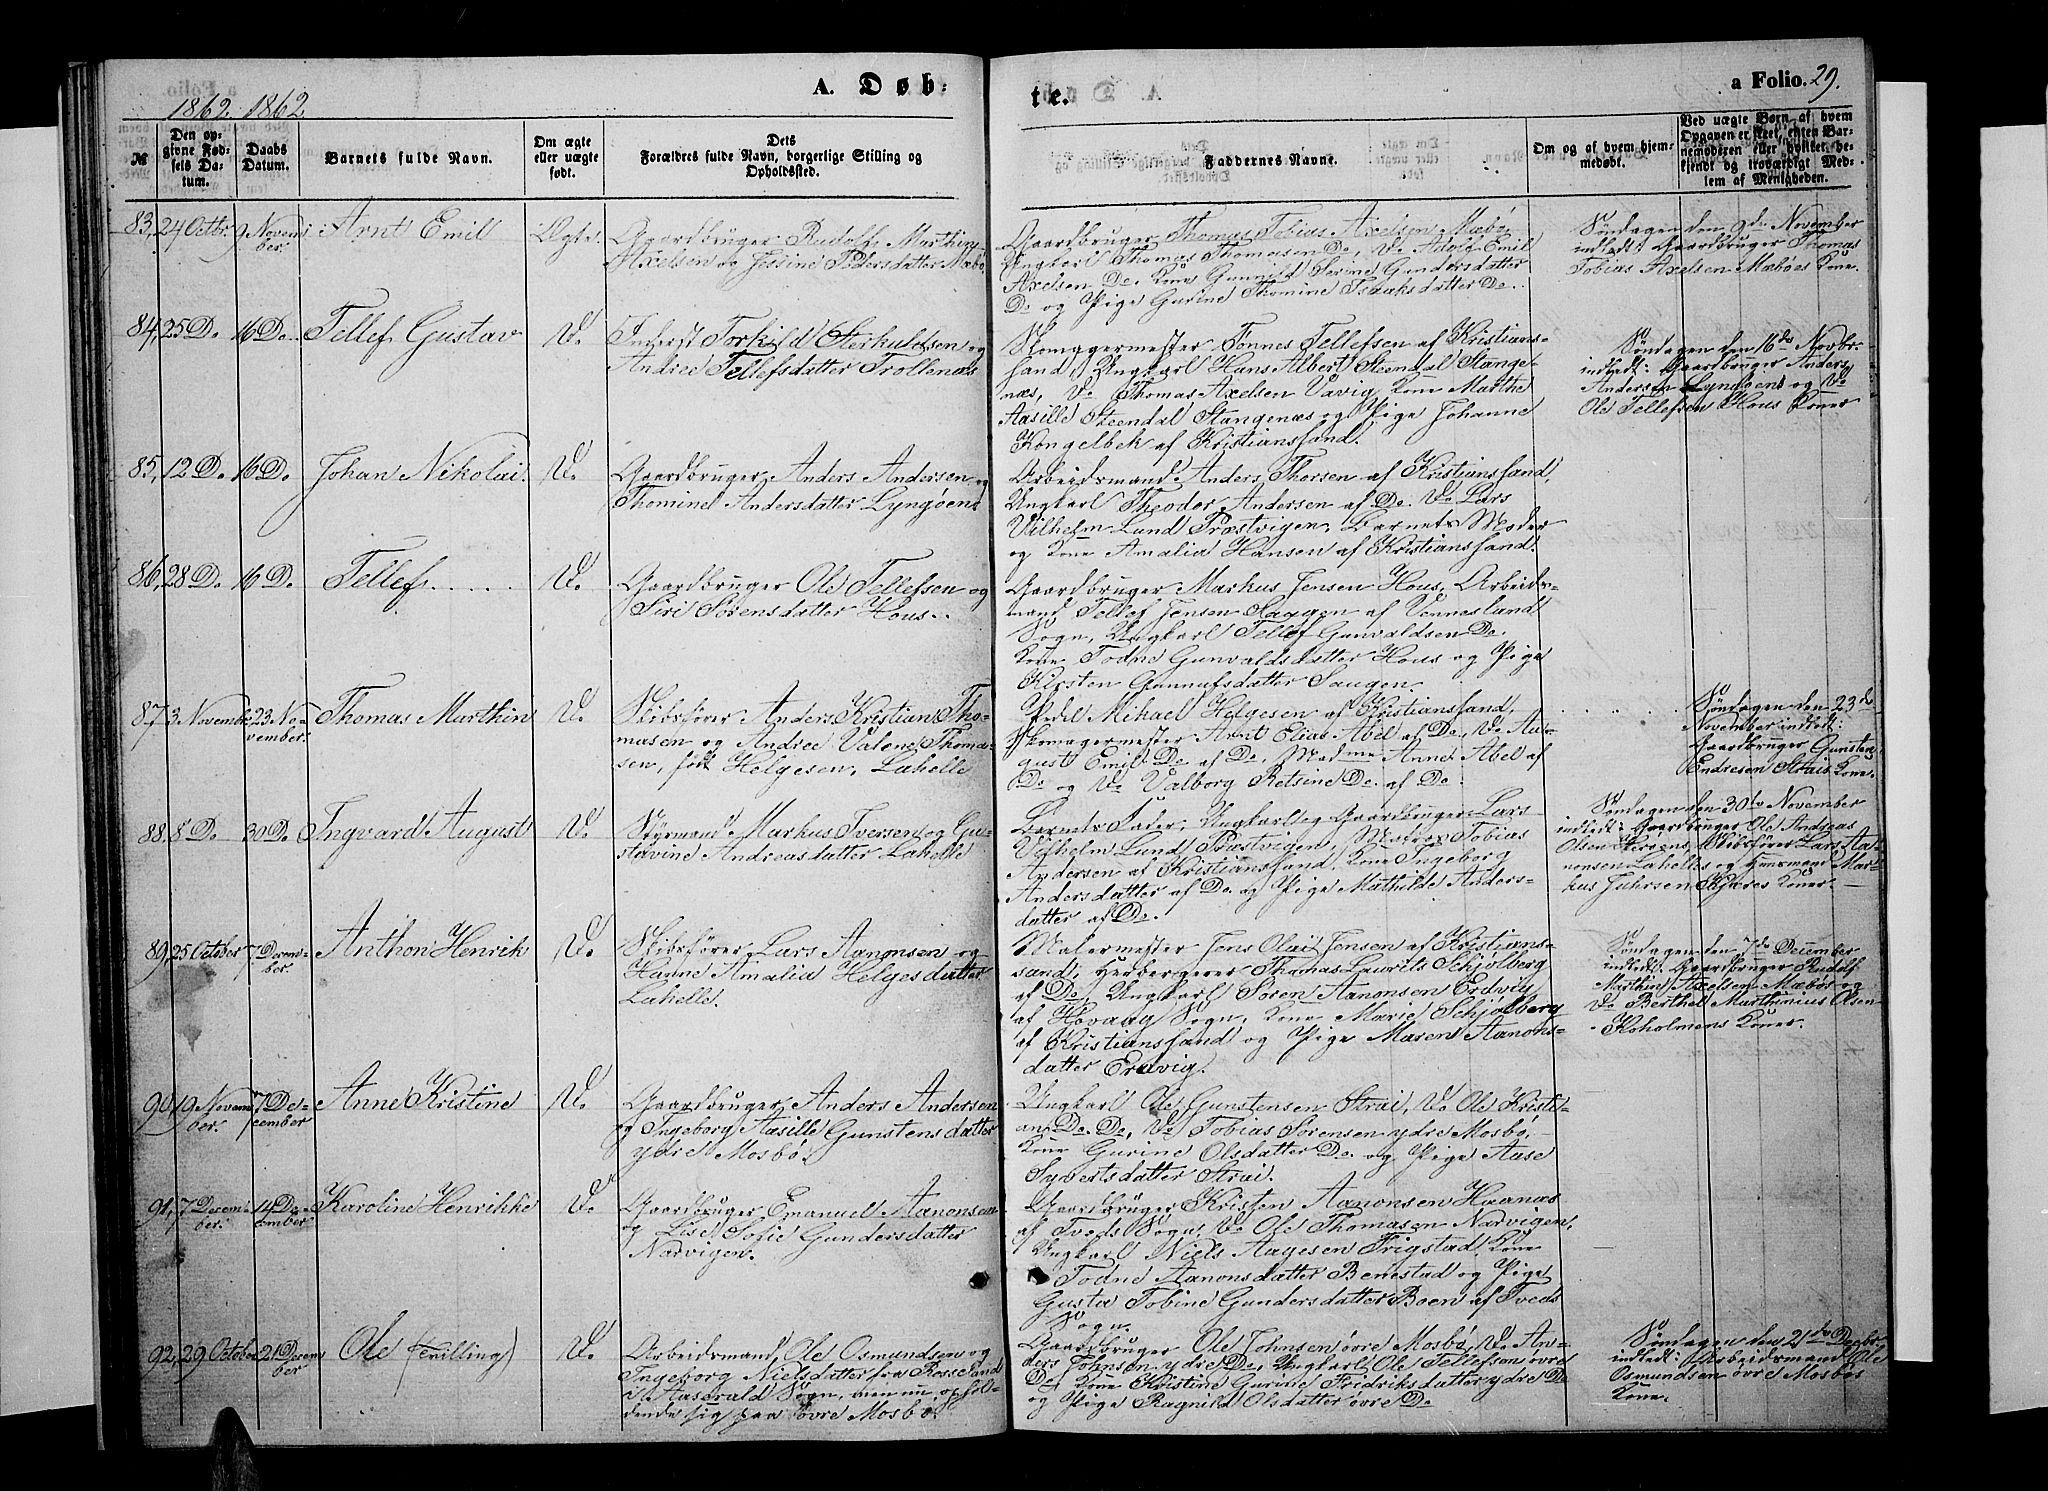 A. Døb-
te.
a Folio. 29.
1862. 1862
№
Den op-
givne Fød-
sels Da-
tum.
Daabs
Datum.
Barnets fulde Navn.
Om ægte
eller uægte
født.
Dets
Forældres fulde Navn, borgerlige Stilling og
Opholdssted.
Faddernes Navne.
Om og af hvem hjem-
medøbt.
Ved uægte Børn af hvem
Opgaven er skeet, enten Bar-
nemoderen eller hvilket be-
kjendt og troværdigt Med-
lem af Menigheden.
83, 24 Octbr. 9 Novem-
ber. Arnt Emil Ægte.
Gaardbruger Rudolf Marthin
Axelsen og Jessine Pedersdatter Mæbø
Gaardbruger Thomas Tobias Axelsen Mæbø,
Ungkarl Thomas Thomasen Do, Do Adolf Emil
Axelsen Do. Kone Gunnild Serine Gundersdatter
Do og Pige Gurine Thomine Isaaksdatter Do.
Søndagen den 9de November
indledt: Gaardbruger Thomas
Tobias Axelsen Mæbøes Kone.
84, 25 Do. 16 Do. Tellef Gustav Do.
Inderst Torkild Sterkuldsen og
Andree Tellefsdatter Trollenæs
Skomagermester Tønnes Tellefsen af Kristians-
sand, Ungkarl Hans Albert Steendal Stange-
næs, Do Thomas Axelsen Vavig, Kone Marthe
Aasille Steendal Stangenæs og Pige Johanne
Kongelbek af Kristianssand.
Søndagen den 16de Novbr.
indledt: Gaardbruger Anders
Andersen Lyngøens og Do
Ole Tellefsen Hous Koner
85, 12 Do. 16 Do. Johan Nikolai. Do.
Gaardbruger Anders Andersen og
Thomine Andersdatter Lyngøen.
Arbeidsmand Anders Thorsen af Kristianssand,
Ungkarl Theodor Andersen af Do. Do Lars
Vilhelm Lund Præstvigen, Barnets Moder
og Kone Amalia Hansen af Kristianssand.
86, 28 D. 16 D. Tellef Do.
Gaardbruger Ole Tellefsen og
Siri Sørensdatter Hous.
Gaardbruger Markus Jensen Hous, Arbeids-
mand Tellef Jensen Saugen af Vennesland
Sogn, Ungkarl Tellef Gunvaldsen Do.
Kone Todne Gunvaldsdatter Hous og Pige
Kirsten Gunnufsdatter Saugen.
87, 3 November. 23 No-
vember. Thomas Marthin Do.
Skibsfører Anders Kristian Tho-
masen og Andree Valene Thoma-
sen, født Helgesen, Lahelle
Pedel Mikael Helgesen af Kristianssand,
Skomagermester Arnt Elias Abel af Do, Do Au-
gust Emil Do af Do, Madme Anne Abel af
Do og Do Valborg Retsine Do. af Do.
Søndagen den 23de
November indledt:
Gaardbruger Gunsten
Endresen Strais Kone.
88. 8 Do 30 Do Ingvard August Do.
Styrmand Markus Iversen og Gu-
stavine Andreasdatter Lahelle
Barnets Fader, Ungkarl og Gaardbruger Lars
Vilhelm Lund Præstvigen, Matros Tobias
Andersen af Kristianssand, Kone Ingeborg
Andersdatter af Do. og Pige Mathilde Anders-
datter af Do.
Søndagen den 30te November
indledt: Gaardbruger Ole Andreas
Olsen Skibsfører Lars Aa-
nonsen Lahelles og Mar-
kus Koner.
89, 25 October 7 Decem-
ber. Anthon Henrik Do.
Skibsfører Lars Aanonsen og
Hanne Amalia Helgesdatter
Lahelle.
Malermester Jens Olai Jensen af Kristians-
sand, Herbergerer Thomas Laurits Schjølberg
af Do, Ungkarl Søren Aanonsen Erdvig
af Høvaag Sogn, Kone Marie Schjølberg
af Kristianssand og Pige Maren Aanons-
datter Erdvig.
Søndagen den 7de December
indledt: Gaardbruger Rudolf
Marthin Axelsen Mæbøs og
Do Berthel Marthinius Olsen
Koholmens Koner.
90, 19 Novem-
ber. 7 De-
cember Anne Kristine Do.
Gaardbruger Anders Andersen
og Ingeborg Aasille Gunstensdatter
ydre Mosbø.
Ungkarl Ole Gunstensen Strai, Do Ole Kristi-
an Do. Do, Do Tobias Sørensen ydre Mosbø,
Kone Gurine Olsdatter Do og Pige Aase
Syvertsdatter Strai.
91, 7 Decem-
ber. 14 De-
cember Karoline Henrikke Do.
Gaardbruger Emanuel Aanonsen
og Lise Sofie Gundersdatter
Narvigen.
Gaardbruger Kristen Aanonsen Haanæs
af Tveds Sogn, Do Ole Thomasen Narvigen,
Ungkarl Niels Aagesen Frigstad, Kone
Todne Aanonsdatter Benestad og Pige
Gusta Tobine Gundersdatter Boen af Tveds
Sogn.
92, 29 October 21 Decem-
ber Ole (Tvilling) Do.
Arbeidsmand Ole Osmundsen og
Ingeborg Nielsdatter fra Rosseland
i Aaserald Sogn, men nu ophol-
dende sig paa øvre Mosbø.
Gaardbruger Ole Johnsen øvre Mosbø, Do An-
ders Johnsen ydre Do, Ungkarl Ole Tellefsen øvre
Do, Kone Kristine Gurine Fridriksdatter ydre Do
og Pige Ragnild Olsdatter øvre Do
Søndagen den 21de Decbr
indledt: Arbeidsmand Ole
Osmundsen øvre Mosbøs
Kone.